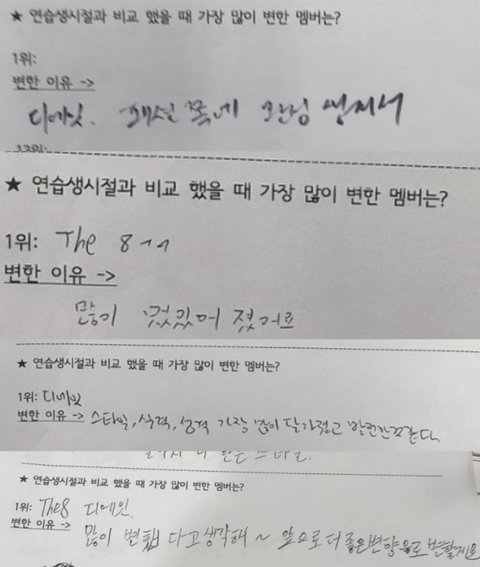 ★ 연습생시절과 비교 했을 때 가장 많이 변한 멤버는?
1위:
변한 이유 ->
디에잇. 패션 쪽에 관심 생겨서
★ 연습생시절과 비교 했을 때 가장 많이 변한 멤버는?
1위: The 8
변한 이유 ->
많이 멋있어 졌어요
★ 연습생시절과 비교 했을 때 가장 많이 변한 멤버는?
1위: 디에잇
변한 이유 -> 스타일, 성격 가장 많이 달라졌고 발전한것같다.
★ 연습생시절과 비교 했을 때 가장 많이 변한 멤버는?
1위: The8 디에잇
변한 이유 -> 많이 변했다고 생각해~ 앞으로 더 좋은 변향으로 변할게요